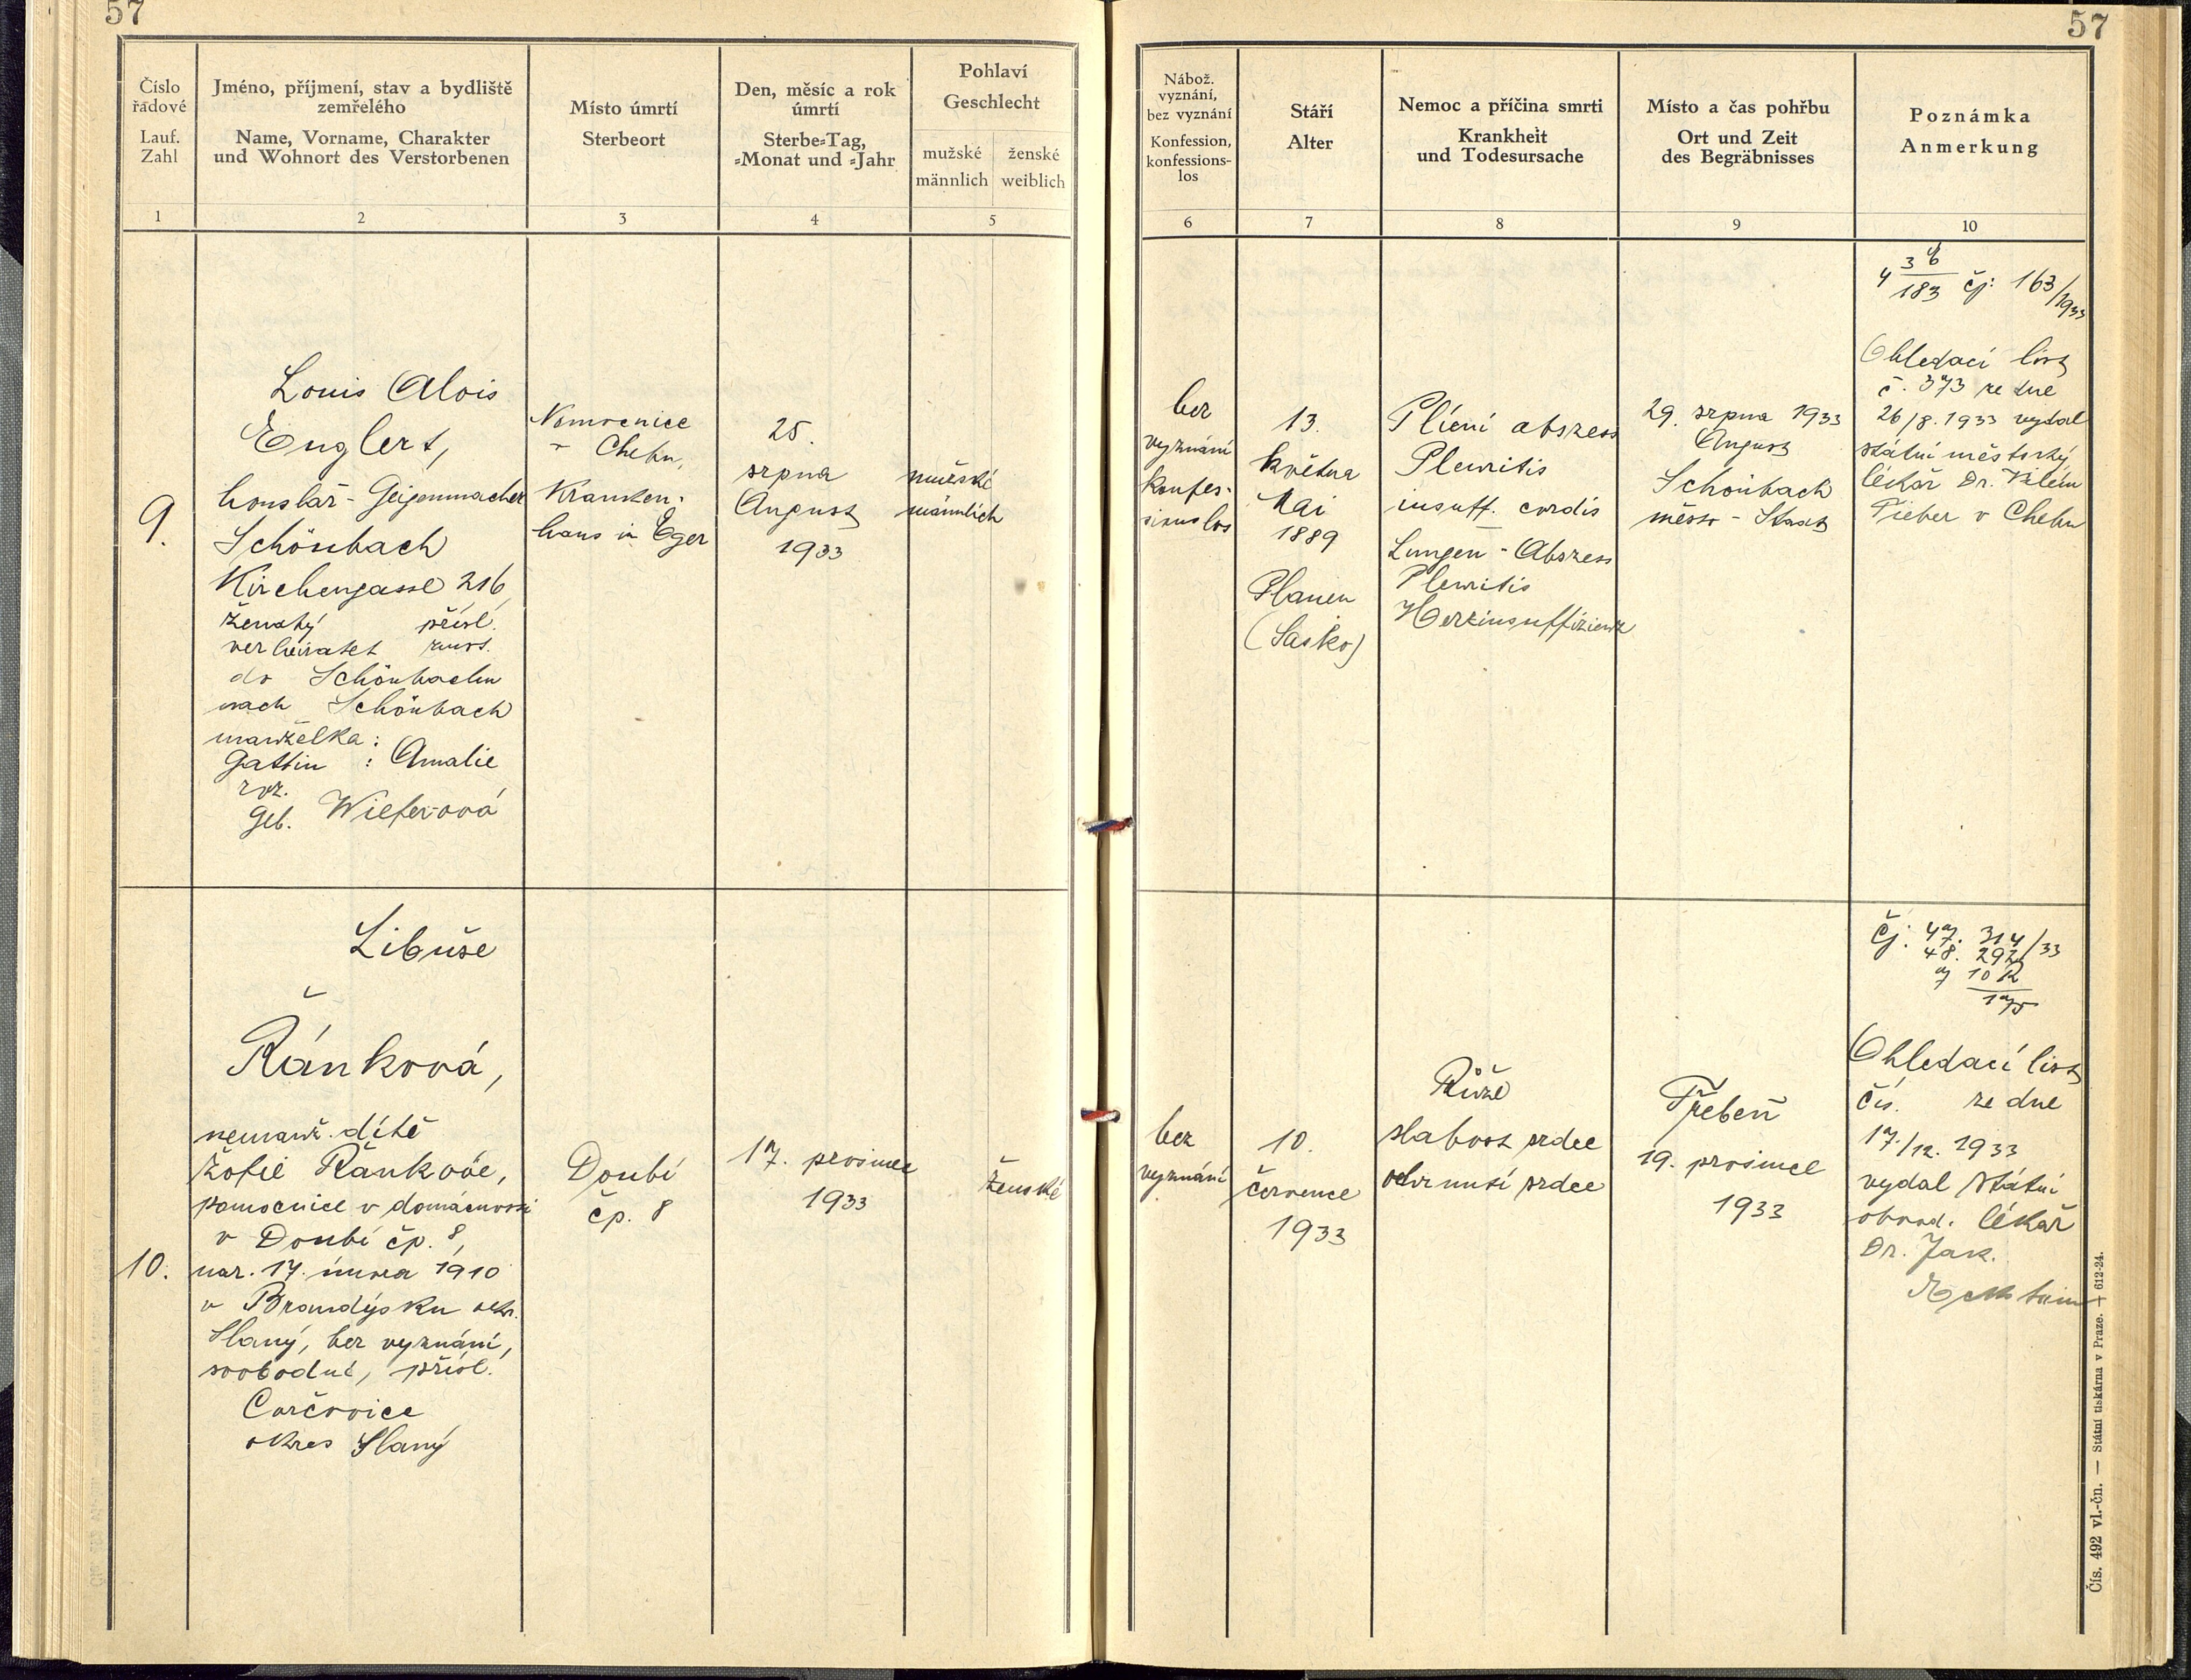 57
Číslo
řadové
Lauf.
Zahl
Jméno, příjmení, stav a bydliště
zemřelého
Name, Vorname, Charakter
und Wohnort des Verstorbenen
Místo úmrtí
Sterbeort
Den, měsíc a rok
úmrtí
Sterbe-Tag,
-Monat und -Jahr
Pohlaví
Geschlecht
mužské
männlich
ženské
weiblich
1
2
3
4
5
9.
Louis Alois
Englert,
houslař - Geigenmacher
Schönbach
Kirchengasse 216
ženatý přísl.
verheiratet zust.
do Schönbachu
nach Schönbach
manželka:
Gattin : Amalie
roz.
geb.
Nemocnice
v Chebu,
Kranken-
haus in Eger
25.
srpna
August
1933
mužské
männlich
10.
Libuše
Řánková,
nemanž. dítě
Žofie Řánkové,
pomocnice v domácnosti
v Doubí čp. 8,
nar. 17. února 1910
v Brandýsku okr.
Slaný, bez vyznání,
svobodné, přísl.
okres Slaný
Doubí
čp. 8
17. prosince
1933
ženské
57
Nábož.
vyznání,
bez vyznání
Konfession,
konfessions-
los
Stáří
Alter
Nemoc a příčina smrti
Krankheit
und Todesursache
Místo a čas pohřbu
Ort und Zeit
des Begräbnisses
Poznámka
Anmerkung
6
7
8
9
10
bez
vyznání
konfes-
sionslos
13.
května
Mai
1889
Plauen
(Sasko)
Plicní abszess
Pleuritis
insuff. cordis
Lungen - Abszess
Pleuritis
Herzinsuffizienz
29. srpna 1933
August
Schönbach
město - Stadt
čj: 163/1933
Ohledací list
č. 373 ze dne
26/8. 1933 vydal
státní městský
lékař Dr. Vilém
Fieber v Chebu
bez
vyznání
10.
července
1933
Růže
slabost srdce
ochrnutí srdce
Třebeň
19. prosince
1933
Čj. 47. 314/33
48. 292
Ohledací list
čís. ze dne
17./12. 1933
vydal státní
obvod. lékař
Dr. Jak.
Čís. 492 vl.-čn. — Státní tiskárna v Praze. † 612-24.